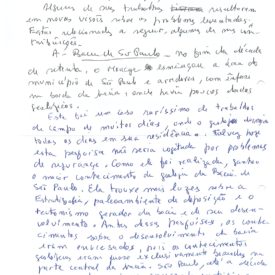 Alguns de nos trabalhos resultaram
em novas versões sobre os problemas levantados.
Estão relacionados a seguir, alguns de nos
tribuições.
A - Bacia de São Paulo - no fim da década
de setenta, o
município de São Paulo e arredores, com ênfase
na borda da bacia, onde havia poucos dados
geológicos.
Este foi um caso raríssimo de trabalhos
de campo de muitos dias, onde o geólogo
todos os dias em sua residência. Talvez hoje
esta pesquisa não seria cogitada por problemas
de segurança. Como ela foi realizada, ganhou
o maior conhecimento da geologia da Bacia de
São Paulo. Ela trouxe mais luzes sobre a
Estratigrafia, paleoambiente de deposição e o
tectonismo gerador da bacia e de seu desen-
volvimento. Antes dessas pesquisas, os conhe-
cimentos sobre o desenvolvimento da bacia
eram enviesados, pois os conhecimentos
geológicos eram quase exclusivamente baseados na
parte central da bacia. São Paulo, até a década